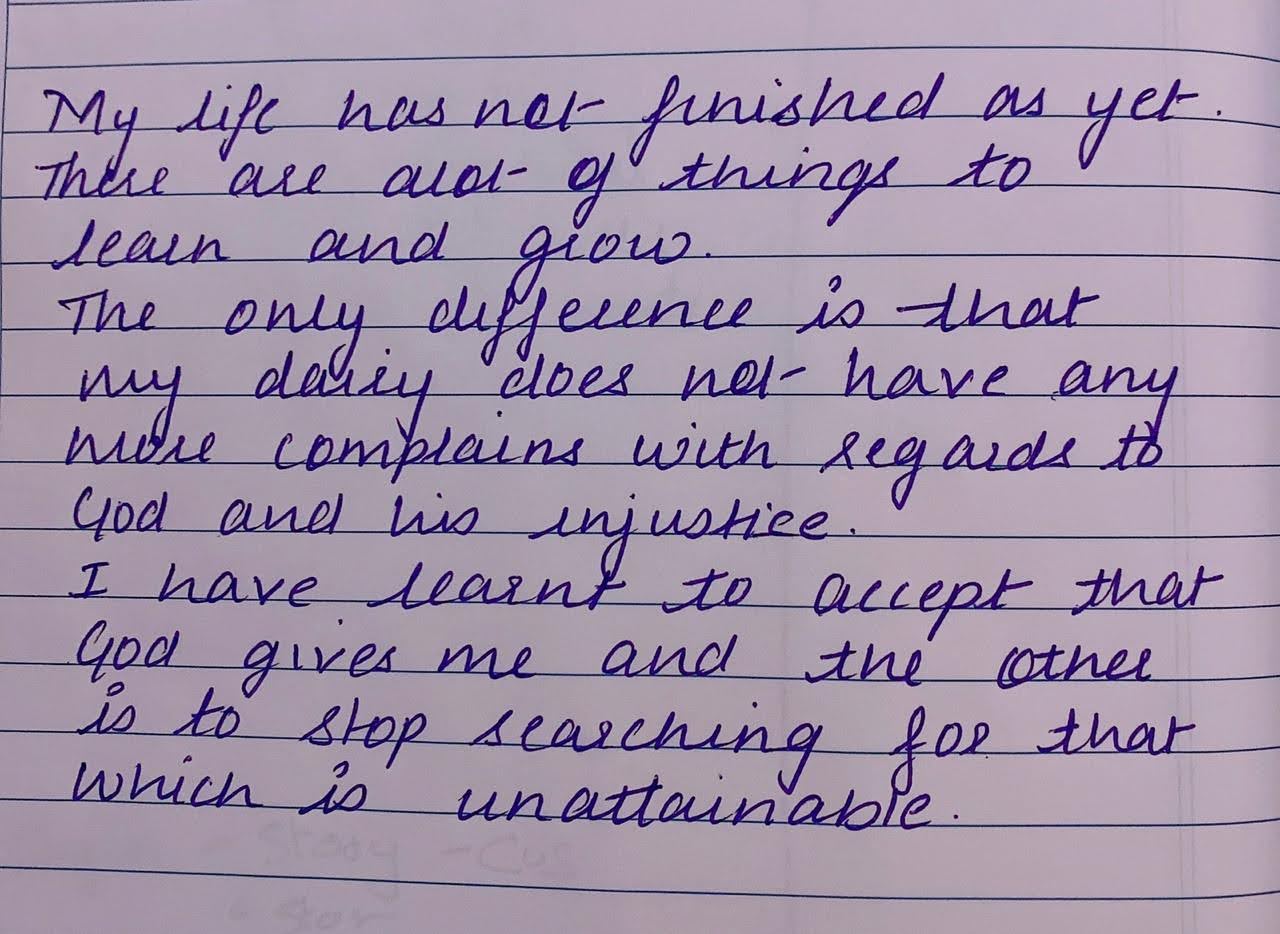 My life has not finished as yet.
There are alot of things to
learn and grow.
The only difference is that
my dairy does not have any
more complains with regards to
God and his injustice.
I have learnt to accept that
God gives me and the other
is to stop searching for that
which is unattainable.